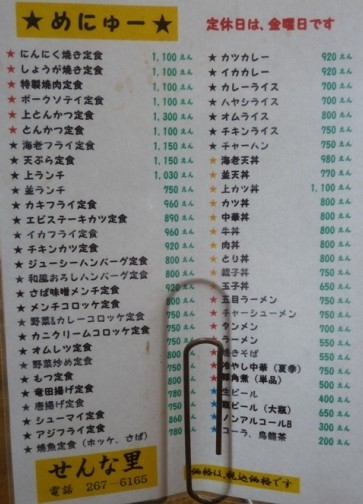 ★めにゅー★
★ にんにく焼き定食 1,100 えん
★ しょうが焼き定食 1,100 えん
★ 特製焼肉定食 1,100 えん
★ ポークソテイ定食 1,100 えん
★ 上とんかつ定食 1,300 えん
★ とんかつ定食 1,100 えん
★ 海老フライ定食 1,150 えん
★ 天ぷら定食 1,150 えん
★ 上ランチ 1,030 えん
★ 並ランチ 750 えん
★ カキフライ定食 960 えん
★ エビステーキカツ定食 890 えん
★ イカフライ定食 960 えん
★ チキンカツ定食 920 えん
★ ジューシーハンバーグ定食
★ 和風おろしハンバーグ定食
★ さば味噌メンチ定食
★ メンチコロッケ定食 800
★ 野菜&カレーコロッケ定食 750
★ カニクリームコロッケ定食 750
★ オムレツ定食 800
★ 野菜炒め定食
★ もつ定食 800
★ 竜田揚げ定食
★ 唐揚げ定食 750
★ シューマイ定食
★ アジフライ定食
★ 焼魚定食(ホッケ、さば) 780
せんな里
電話 267-6165
定休日は、金曜日です
★ カツカレー 920 えん
★ イカカレー 920 えん
★ カレーライス 700 えん
★ ハヤシライス 700 えん
★ オムライス 800 えん
★ チキンライス 750 えん
★ チャーハン 750 えん
★ 海老天丼 980 えん
★ 並天丼 770 えん
★ 上カツ丼 1,100 えん
★ カツ丼 800 えん
★ 中華丼 800 えん
★ 牛丼 800 えん
★ 肉丼 800 えん
★ とり丼 800 えん
★ 親子丼 750 えん
★ 玉子丼 650 えん
★ 五目ラーメン 750 えん
★ チャーシューメン 750 えん
★ タンメン 700 えん
★ ラーメン 550 えん
焼きそば 550 えん
冷やし中華(夏季) 750 えん
豚角煮(単品) 500 えん
生ビール
瓶ビール(大瓶)
ノンアルコールB 300 えん
コーラ、烏龍茶 200 えん
価格は、税込価格です